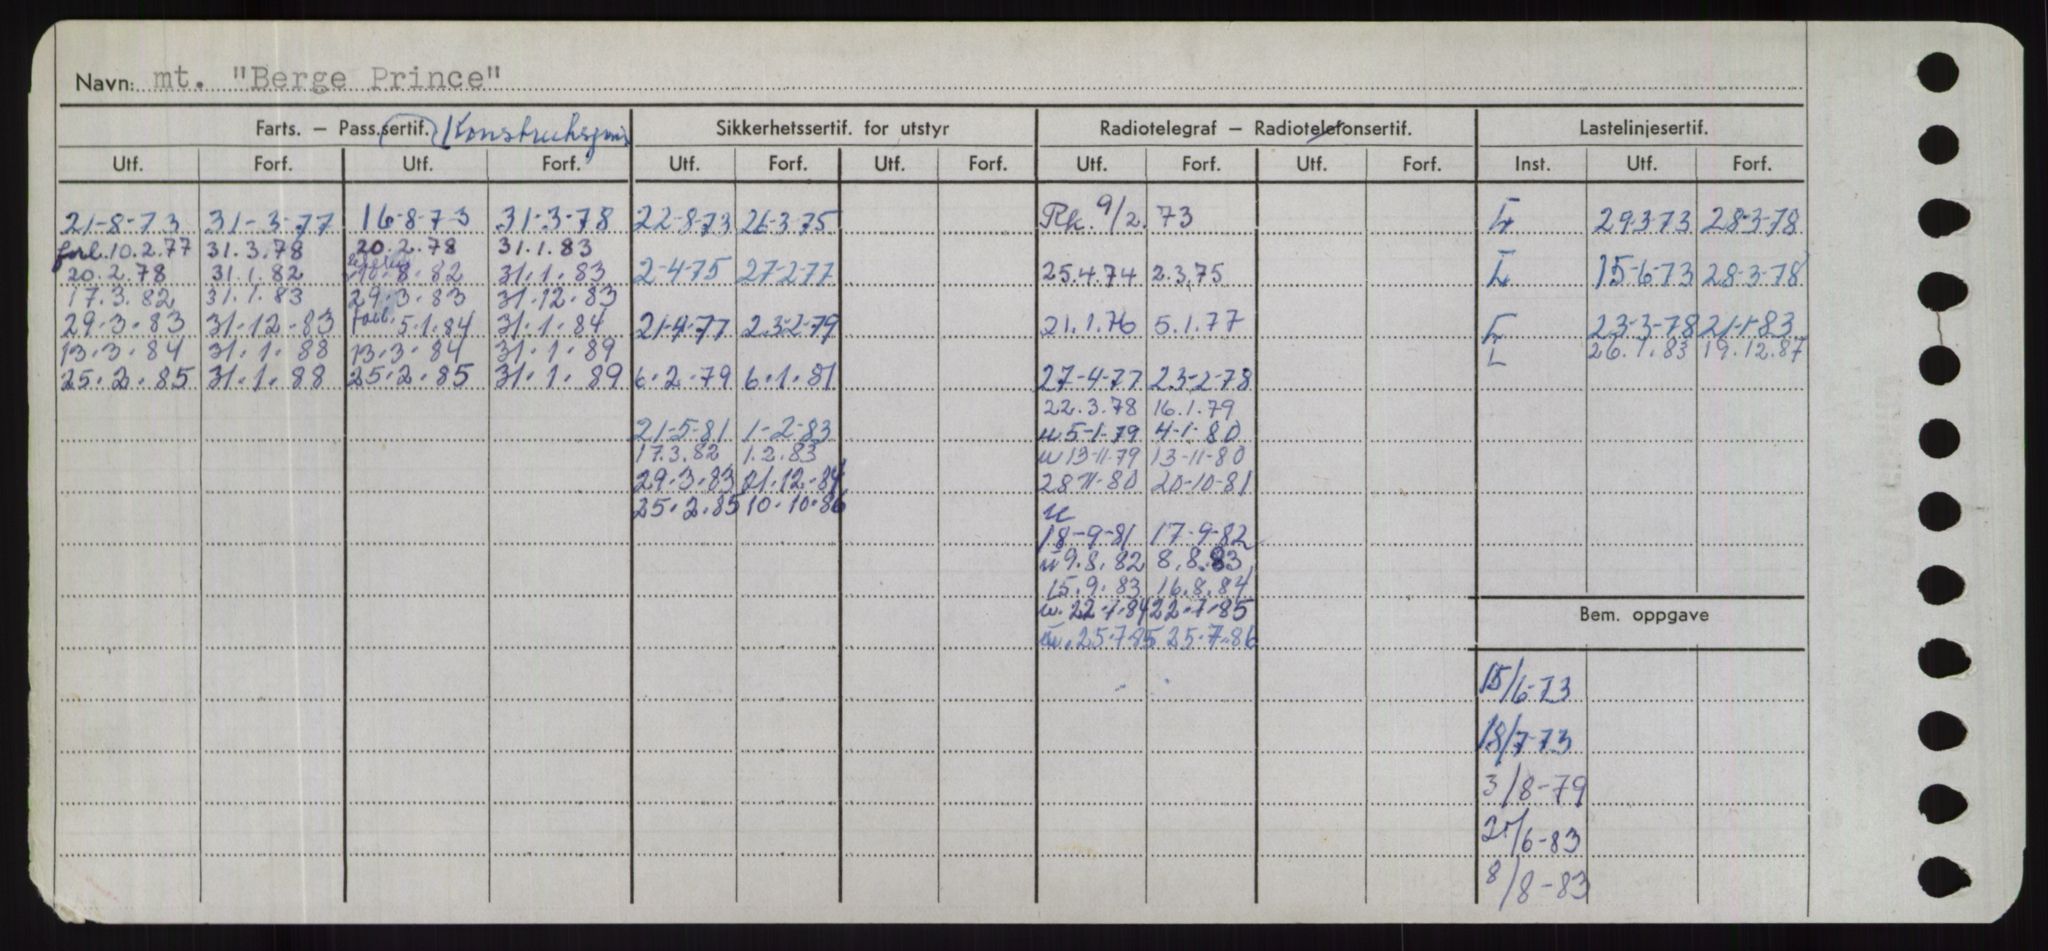 Navn: mt. "Berge Prince"
Farts. — Pass.sertif. Sikkerhetssertif. for utstyr Radiotelegraf — Radiotelefonsertif. Lastelinjesertif.
Utf. Forf. Utf. Forf. Utf. Forf. Utf. Forf. Utf. Forf. Utf. Forf. Inst. Utf. Forf.
21-8-73 31-3-77 16-8-73 31-3-78 22-8-73 26-3-75 Rk. 9/2 73 L 29-3-73 28-3-78
forl. 10.2.77 31.3.78 20.2.78 31.1.83
20.2.78 31.1.82 18.8.82 31.1.83 2-4-75 27-2-77 25.4.74 2.3.75 L 15-6-73 28-3-78
17.3.82 31.1.83 29.3.83 31.12.83
29.3.83 31.12.83 forl. 5.1.84 31.1.84 21-4-77 23-2-79 21.1.76 5.1.77 L 23-3-78 21-1-83
13.3.84 31.1.88 13.3.84 31.1.89 L 26.1.83 19.12.87
25.2.85 31.1.88 25.2.85 31.1.89 6.2.79 6.1.81 27-4-77 23-2-78
22.3.78 16.1.79
21-5-81 1-2-83 u 5-1-79 4-1-80
17.3.82 1.2.83 u 13-11-79 13-11-80
29.3.83 21.12.84 28-11-80 20-10-81
25.2.85 10.10.86 u
18-9-81 17-9-82
u 9.8.82 8.8.83
15.9.83 16.8.84
u. 22.7.84 22.7.85
Bem. oppgave
u. 25.7.85 25.7.86
15/6-73
18/7-73
3/8-79
21/6-83
8/8-83